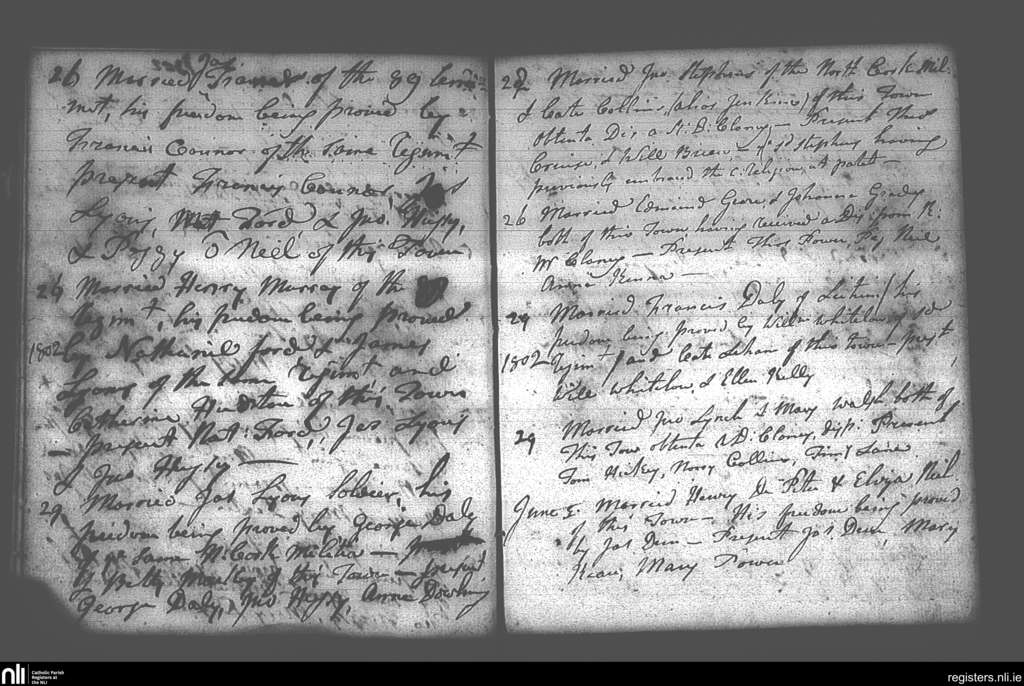 Jas
26 Married Francis of the 89 
ment, his freedom being proved by
Francis Connor of the same Regimt
present Francis Connor, Jas
Lyons, Nat Ford & Jno Hussy,
& Peggy O Neil of this Town
26 Married Henry Murray of the
Regimt, his fredom being proved
1802 by Nathaniel ford & James
Lyons of the same regimt and
Catherine of this Town
— present Nat: Ford, Jas Lyons
& Jno Hussy —
29 Married Jas Lyons Soldier, his
freedom being proved by George Daly
of ye same N: Cork Militia —
& Betty of this Town — present
George Daly, Jno Hussy, Anne Dowling
Married Jno Stephens of the North Cork Mil:
& Cate Collins (alias Jenkins) of this Town
obtenta Dis a R. D. Clancy — Present Thos
Cruise, & Will Brien — ye sd Stephens having
previously embraced the C. religion, ut patet —
26 Married Edmund Geare & Johanna Grady
both of this Town having received a Dis: from R.
Mr Clancy — Present Thos Power, Peg Neil,
Anne —
29 Married Francis Daly of Lieutent / his
fredom being proved by Willm whitelow of sd
1802 Regimt / and Cate Lehan of this Town — prest
Will whitelow, & Ellen Kelly
29 Married Jno Lynch & Mary Walsh both of
this Town obtenta a D: Clancy, disp: Present
Tom Hickey, Norry Collins, Timy Laine
June 5. Married Henry De Peter & Eliza Neil
of this Town — His freedom being proved
by Jas Dunn — Present Jas Dunn, Mary
Mary Power
nli
Catholic Parish
Registers at
the NLI
registers.nli.ie